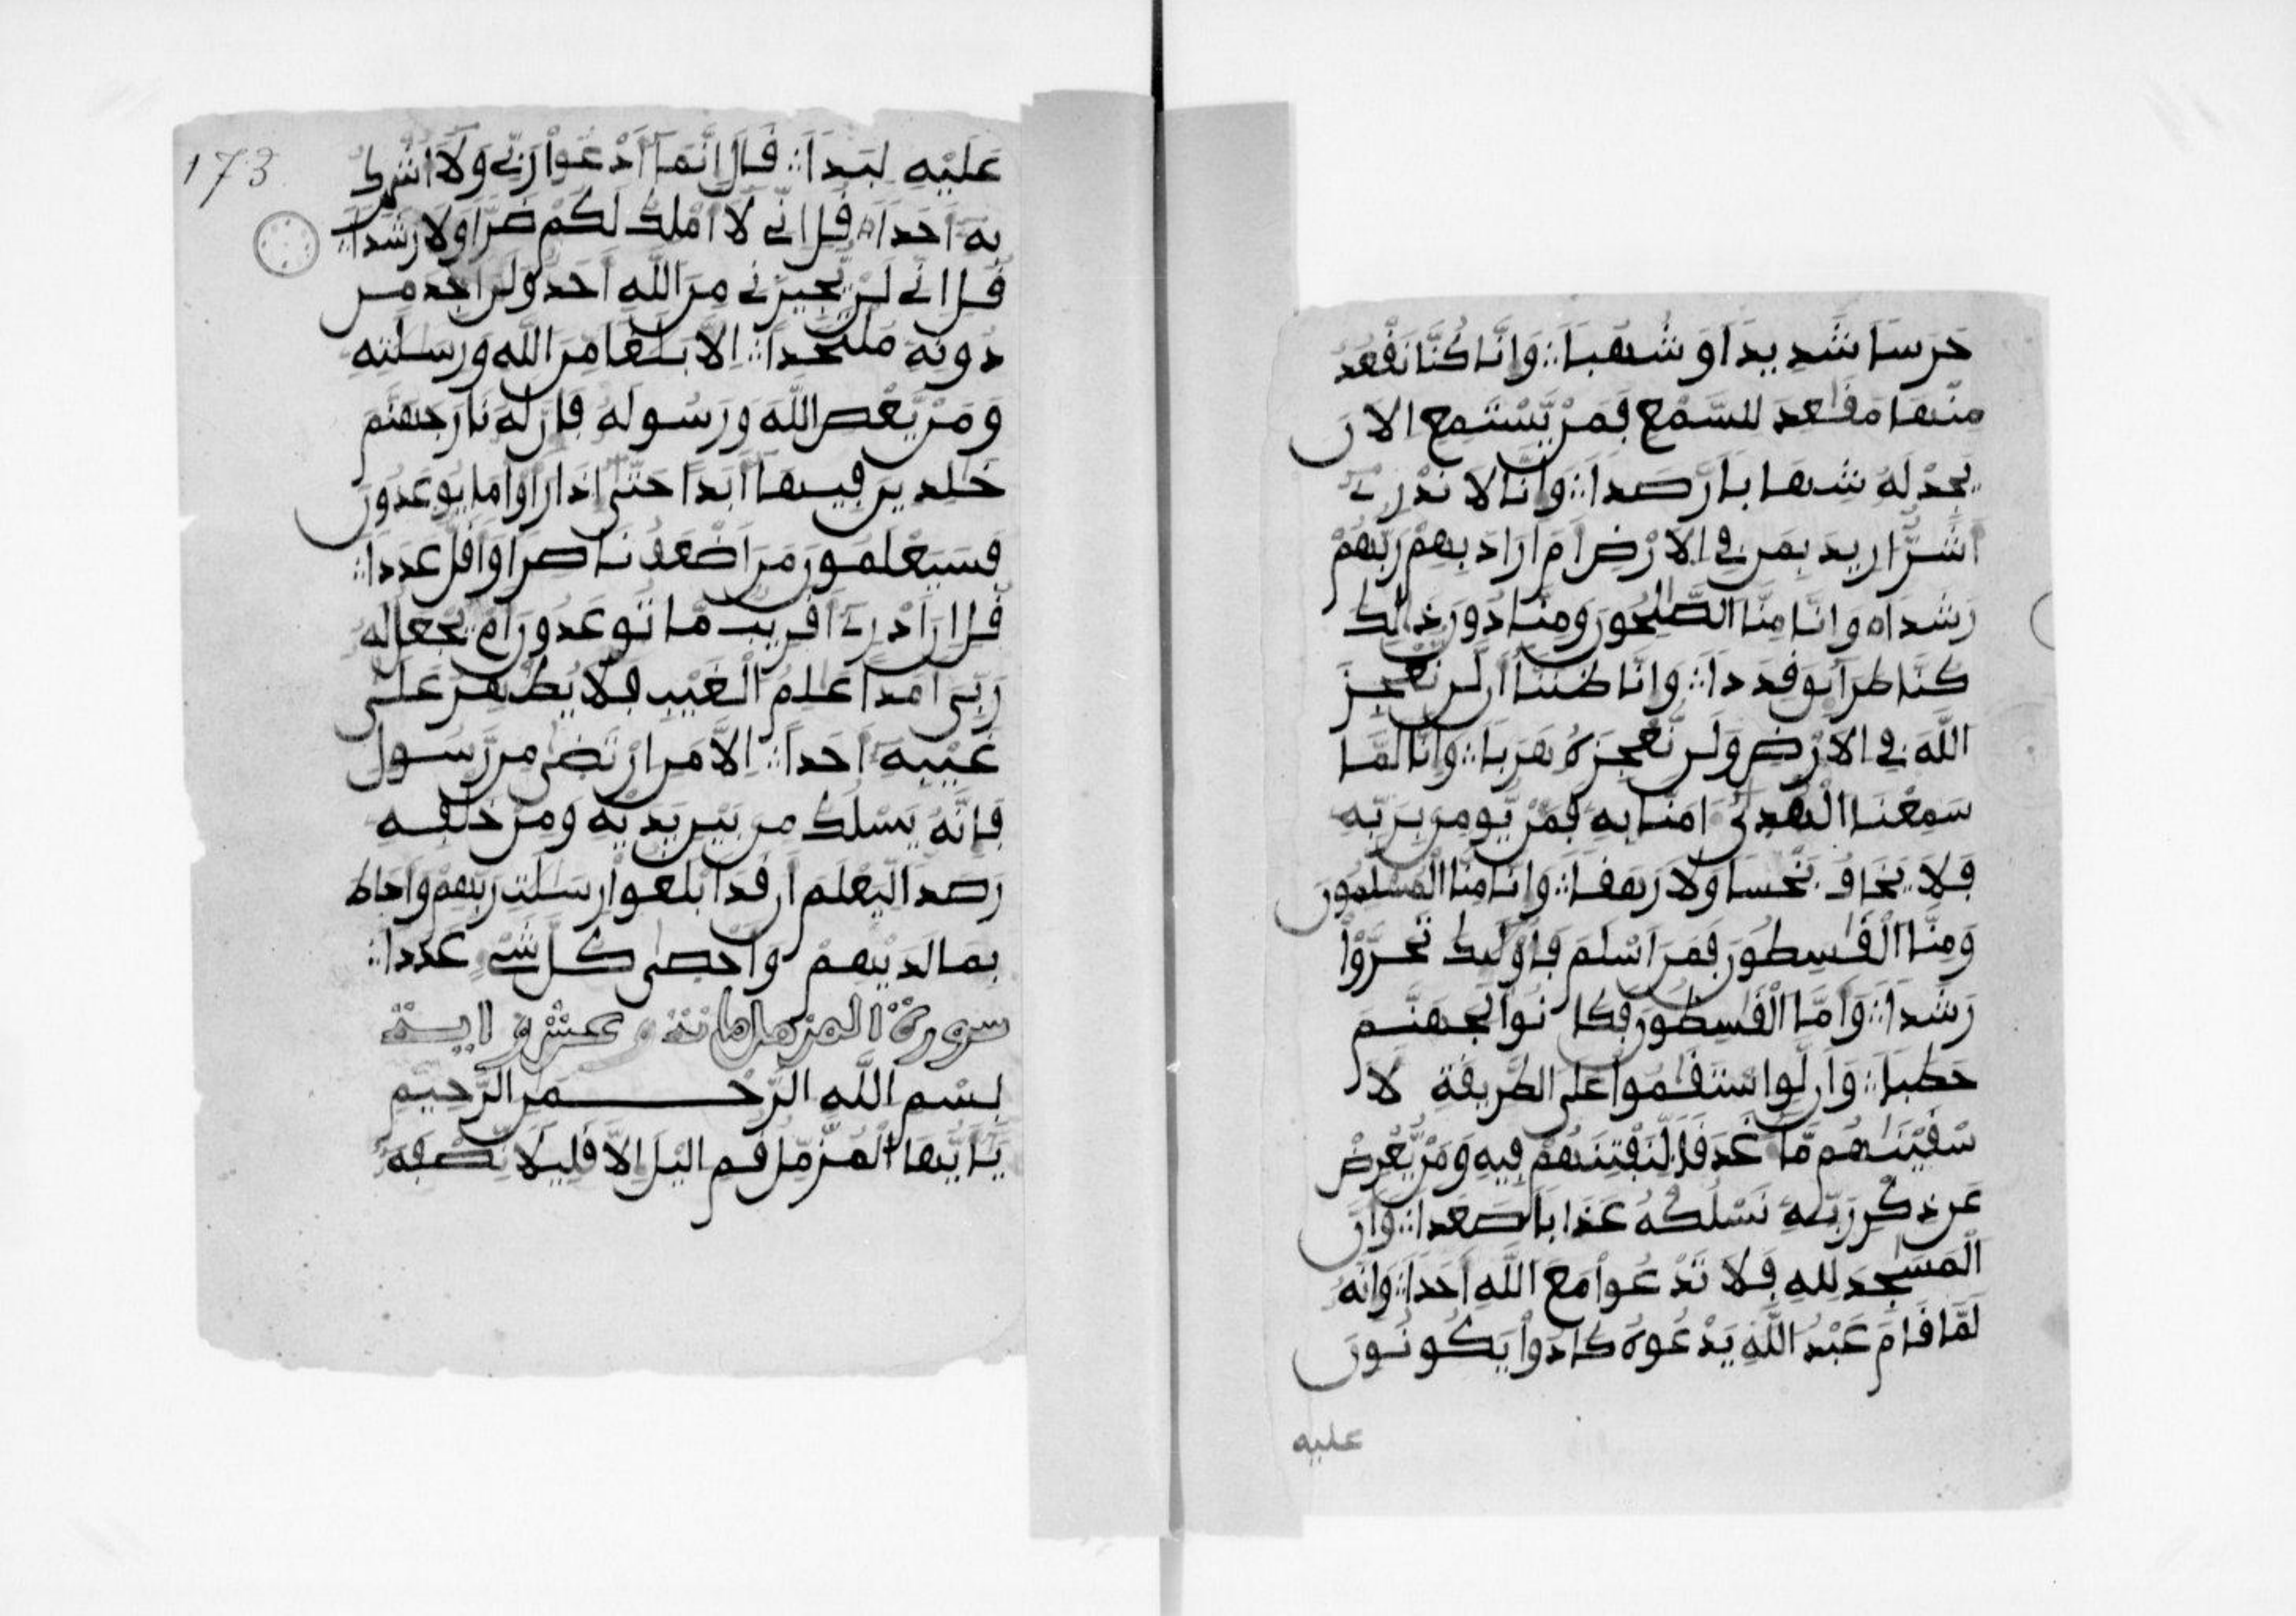 حَرَسًا شَدِيدًا وَشُهُبًا وَإِنَّا كُنَّا نَقْعُدُ
مِنْهَا مَقَٰعِدَ لِلسَّمْعِ فَمَنْ يَّسْتَمِعِ الَانَ
يَجِدْ لَهُ شِهَابًا رَّصَدًا وَإِنَّا لَا نَدْرِے
أَشَرٌّ ارِيدَ بِمَن فِي الَارْضِ أَمَ ارَادَ بِهِمْ رَبُّهُمْ
رَشَدًا وَإِنَّا مِنَّا الصَّٰلِحُونَ وَمِنَّا دُونَ ذَٰلِكَ
كُنَّا طَرَآئِقَ قِدَدًا وَإِنَّا ظَنَنَّا أَن لَّن نُّعْجِزَ
اللَّهَ فِي الَارْضِ وَلَن نُّعْجِزَهُ هَرَبًا وَإِنَّا لَمَّا
سَمِعْنَا الْهُدَىٰ ءَامَنَّا بِهِ فَمَنْ يُّومِن بِرَبِّهِ
فَلَا يَخَافُ بَخْسًا وَلَا رَهَقًا وَإِنَّا مِنَّا الْمُسْلِمُونَ
وَمِنَّا الْقَٰسِطُونَ فَمَنَ اسْلَمَ فَأُوْلَٰئِكَ تَحَرَّوْاْ
رَشَدًا وَأَمَّا الْقَٰسِطُونَ فَكَانُواْ لِجَهَنَّمَ
حَطَبًا وَأَن لَّوِ اسْتَقَٰمُواْ عَلَى الطَّرِيقَةِ لَأَ
سْقَيْنَٰهُم مَّآءً غَدَقًا لِّنَفْتِنَهُمْ فِيهِ وَمَنْ يُّعْرِضْ
عَن ذِكْرِ رَبِّهِ نَسْلُكْهُ عَذَابًا صَعَدًا وَأَنَّ
الْمَسَٰجِدَ لِلهِ فَلَا تَدْعُواْ مَعَ اللَّهِ أَحَدًا وَإِنَّهُ
لَمَّا قَامَ عَبْدُ اللَّهِ يَدْعُوهُ كَادُواْ يَكُونُونَ
عليه
173
عَلَيْهِ لِبَدًا قَالَ إِنَّمَا أَدْعُواْ رَبِّے وَلَا أُشْرِكُ
بِهِ أَحَدًا قُلِ انِّے لَا أَمْلِكُ لَكُمْ ضَرًّا وَلَا رَشَدًا
قُلِ انِّے لَنْ يُّجِيرَنِے مِنَ اللَّهِ أَحَدٌ وَلَنَ اجِدَ مِن
دُونِهِ مُلْتَحَدًا إِلَّا بَلَٰغًا مِّنَ اللَّهِ وَرِسَٰلَٰتِهِ
وَمَنْ يَّعْصِ اللَّهَ وَرَسُولَهُ فَإِنَّ لَهُ نَارَ جَهَنَّمَ
خَٰلِدِينَ فِيهَا أَبَدًا حَتَّىٰ إِذَا رَأَوْاْ مَا يُوعَدُونَ
فَسَيَعْلَمُونَ مَنَ اضْعَفُ نَاصِرًا وَأَقَلُّ عَدَدًا
قُلِ انَ ادْرِے أَقَرِيبٌ مَّا تُوعَدُونَ أَمْ يَجْعَلُ لَهُ
رَبِّيَ أَمَدًا عَٰلِمُ الْغَيْبِ فَلَا يُظْهِرُ عَلَىٰ
غَيْبِهِ أَحَدًا إِلَّا مَنِ ارْتَضَىٰ مِن رَّسُولٍ
فَإِنَّهُ يَسْلُكُ مِن بَيْنِ يَدَيْهِ وَمِنْ خَلْفِهِ
رَصَدًا لِّيَعْلَمَ أَن قَدَ ابْلَغُواْ رِسَٰلَٰتِ رَبِّهِمْ وَأَحَاطَ
بِمَا لَدَيْهِمْ وَأَحْصَىٰ كُلَّ شَيْءٍ عَدَدًا
سورة المزمل مائة وعشرو اية
بِسْمِ اللَّهِ الرَّحْمَنِ الرَّحِيمِ
يَٰأَيُّهَا الْمُزَّمِّلُ قُمِ اليْلَ إِلَّا قَلِيلًا نِّصْفَهُ